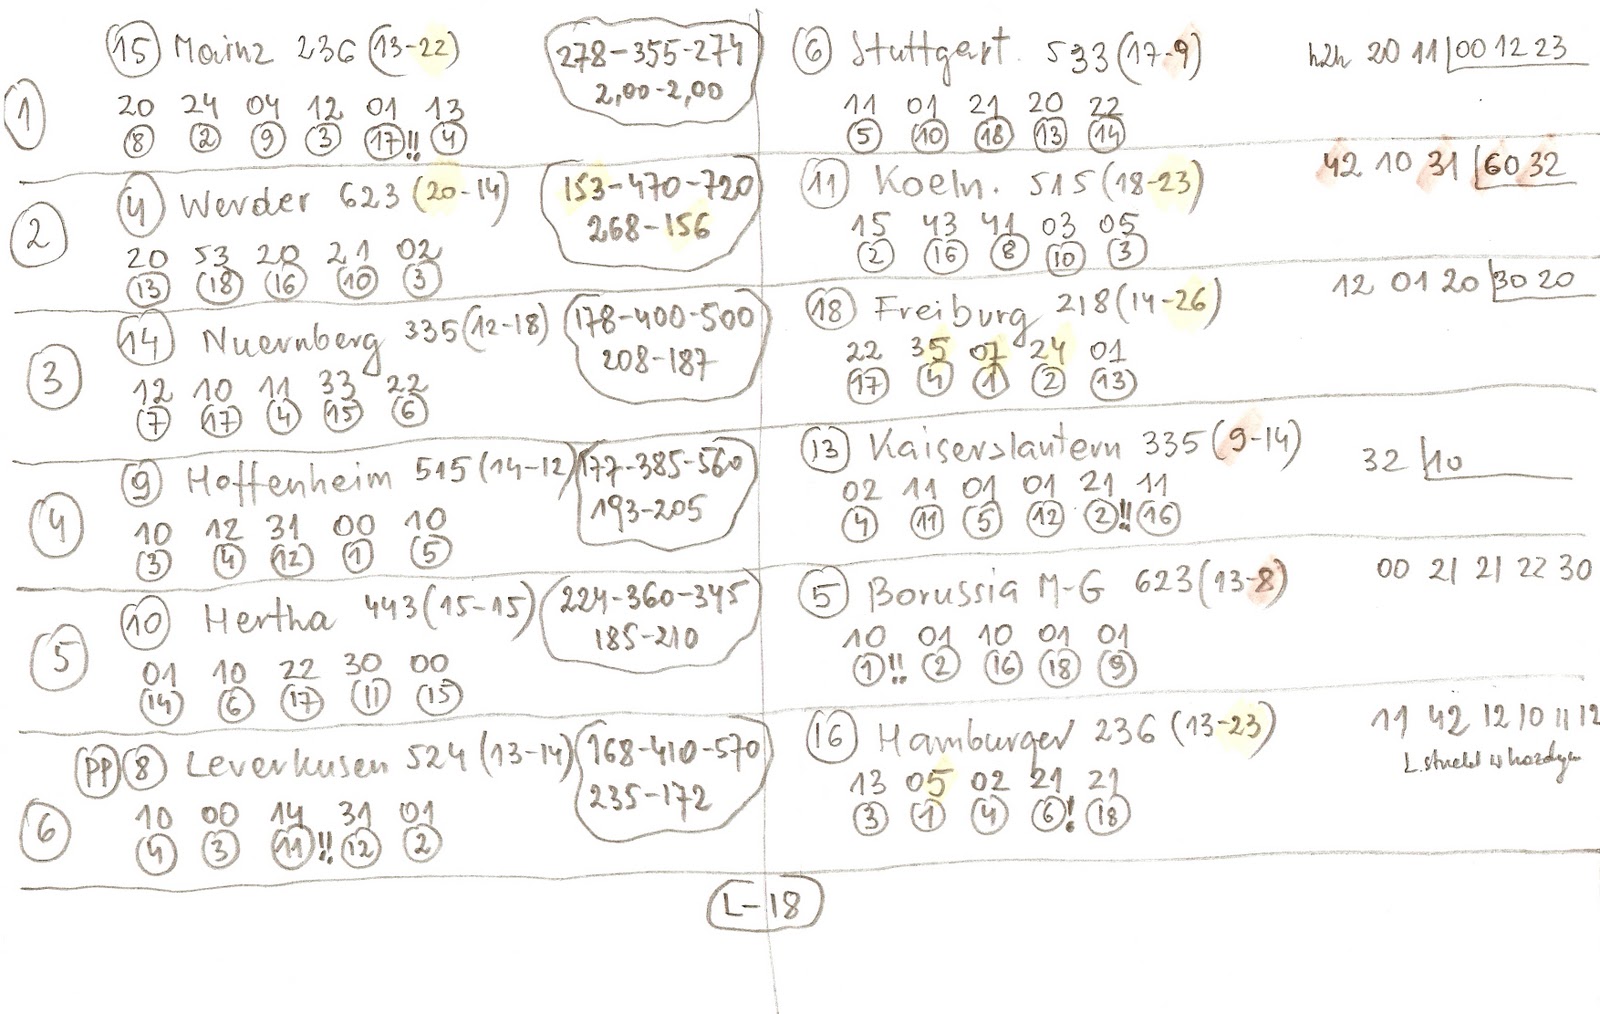 15 Mainz 236 (13-22) 278-355-274 6 Stuttgart. 533 (17-9) h2h 20 11 00 12 23
1 20 24 04 12 01 13 2,00-2,00 11 01 21 20 22
8 2 9 3 17!! 4 5 10 18 13 14
4 Werder 623 (20-14) 153-470-720 11 Koeln. 515 (18-23) 42 10 31 60 32
2 20 53 20 21 02 268-156 15 43 41 03 05
13 18 16 10 3 2 16 8 10 3
14 Nuernberg 335 (12-18) 178-400-500 18 Freiburg 218 (14-26) 12 01 20 30 20
3 12 10 11 33 22 208-187 22 35 07 24 01
7 17 4 15 6 17 4 1 2 13
9 Hoffenheim 515 (14-12) 177-385-560 13 Kaiserslautern 335 (9-14) 32 10
4 10 12 31 00 10 193-205 02 11 01 01 21 11
3 4 12 1 5 4 11 5 12 2!! 16
10 Hertha 443 (15-15) 224-360-345 5 Borussia M-G 623 (13-8) 00 21 21 22 30
5 01 10 22 30 00 185-210 10 01 10 01 01
14 6 17 11 15 1!! 2 16 18 9
PP 8 Leverkusen 524 (13-14) 168-410-570 16 Hamburger 236 (13-23) 11 42 12 10 11 12
6 10 00 14 31 01 235-172 13 05 02 21 21
4 3 11!! 12 2 3 1 4 6! 18
L-18